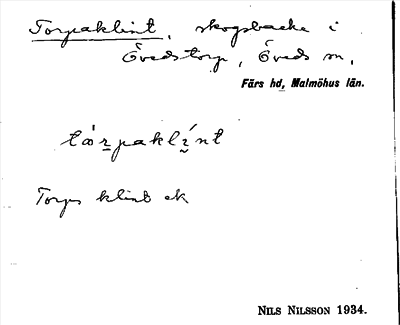 Torpaklint, skogsbacke i
Övedstorp, Öveds sn,
Färs hd, Malmöhus län.
tòrpaklínt
Torps klint ek
NILS NILSSON 1934.